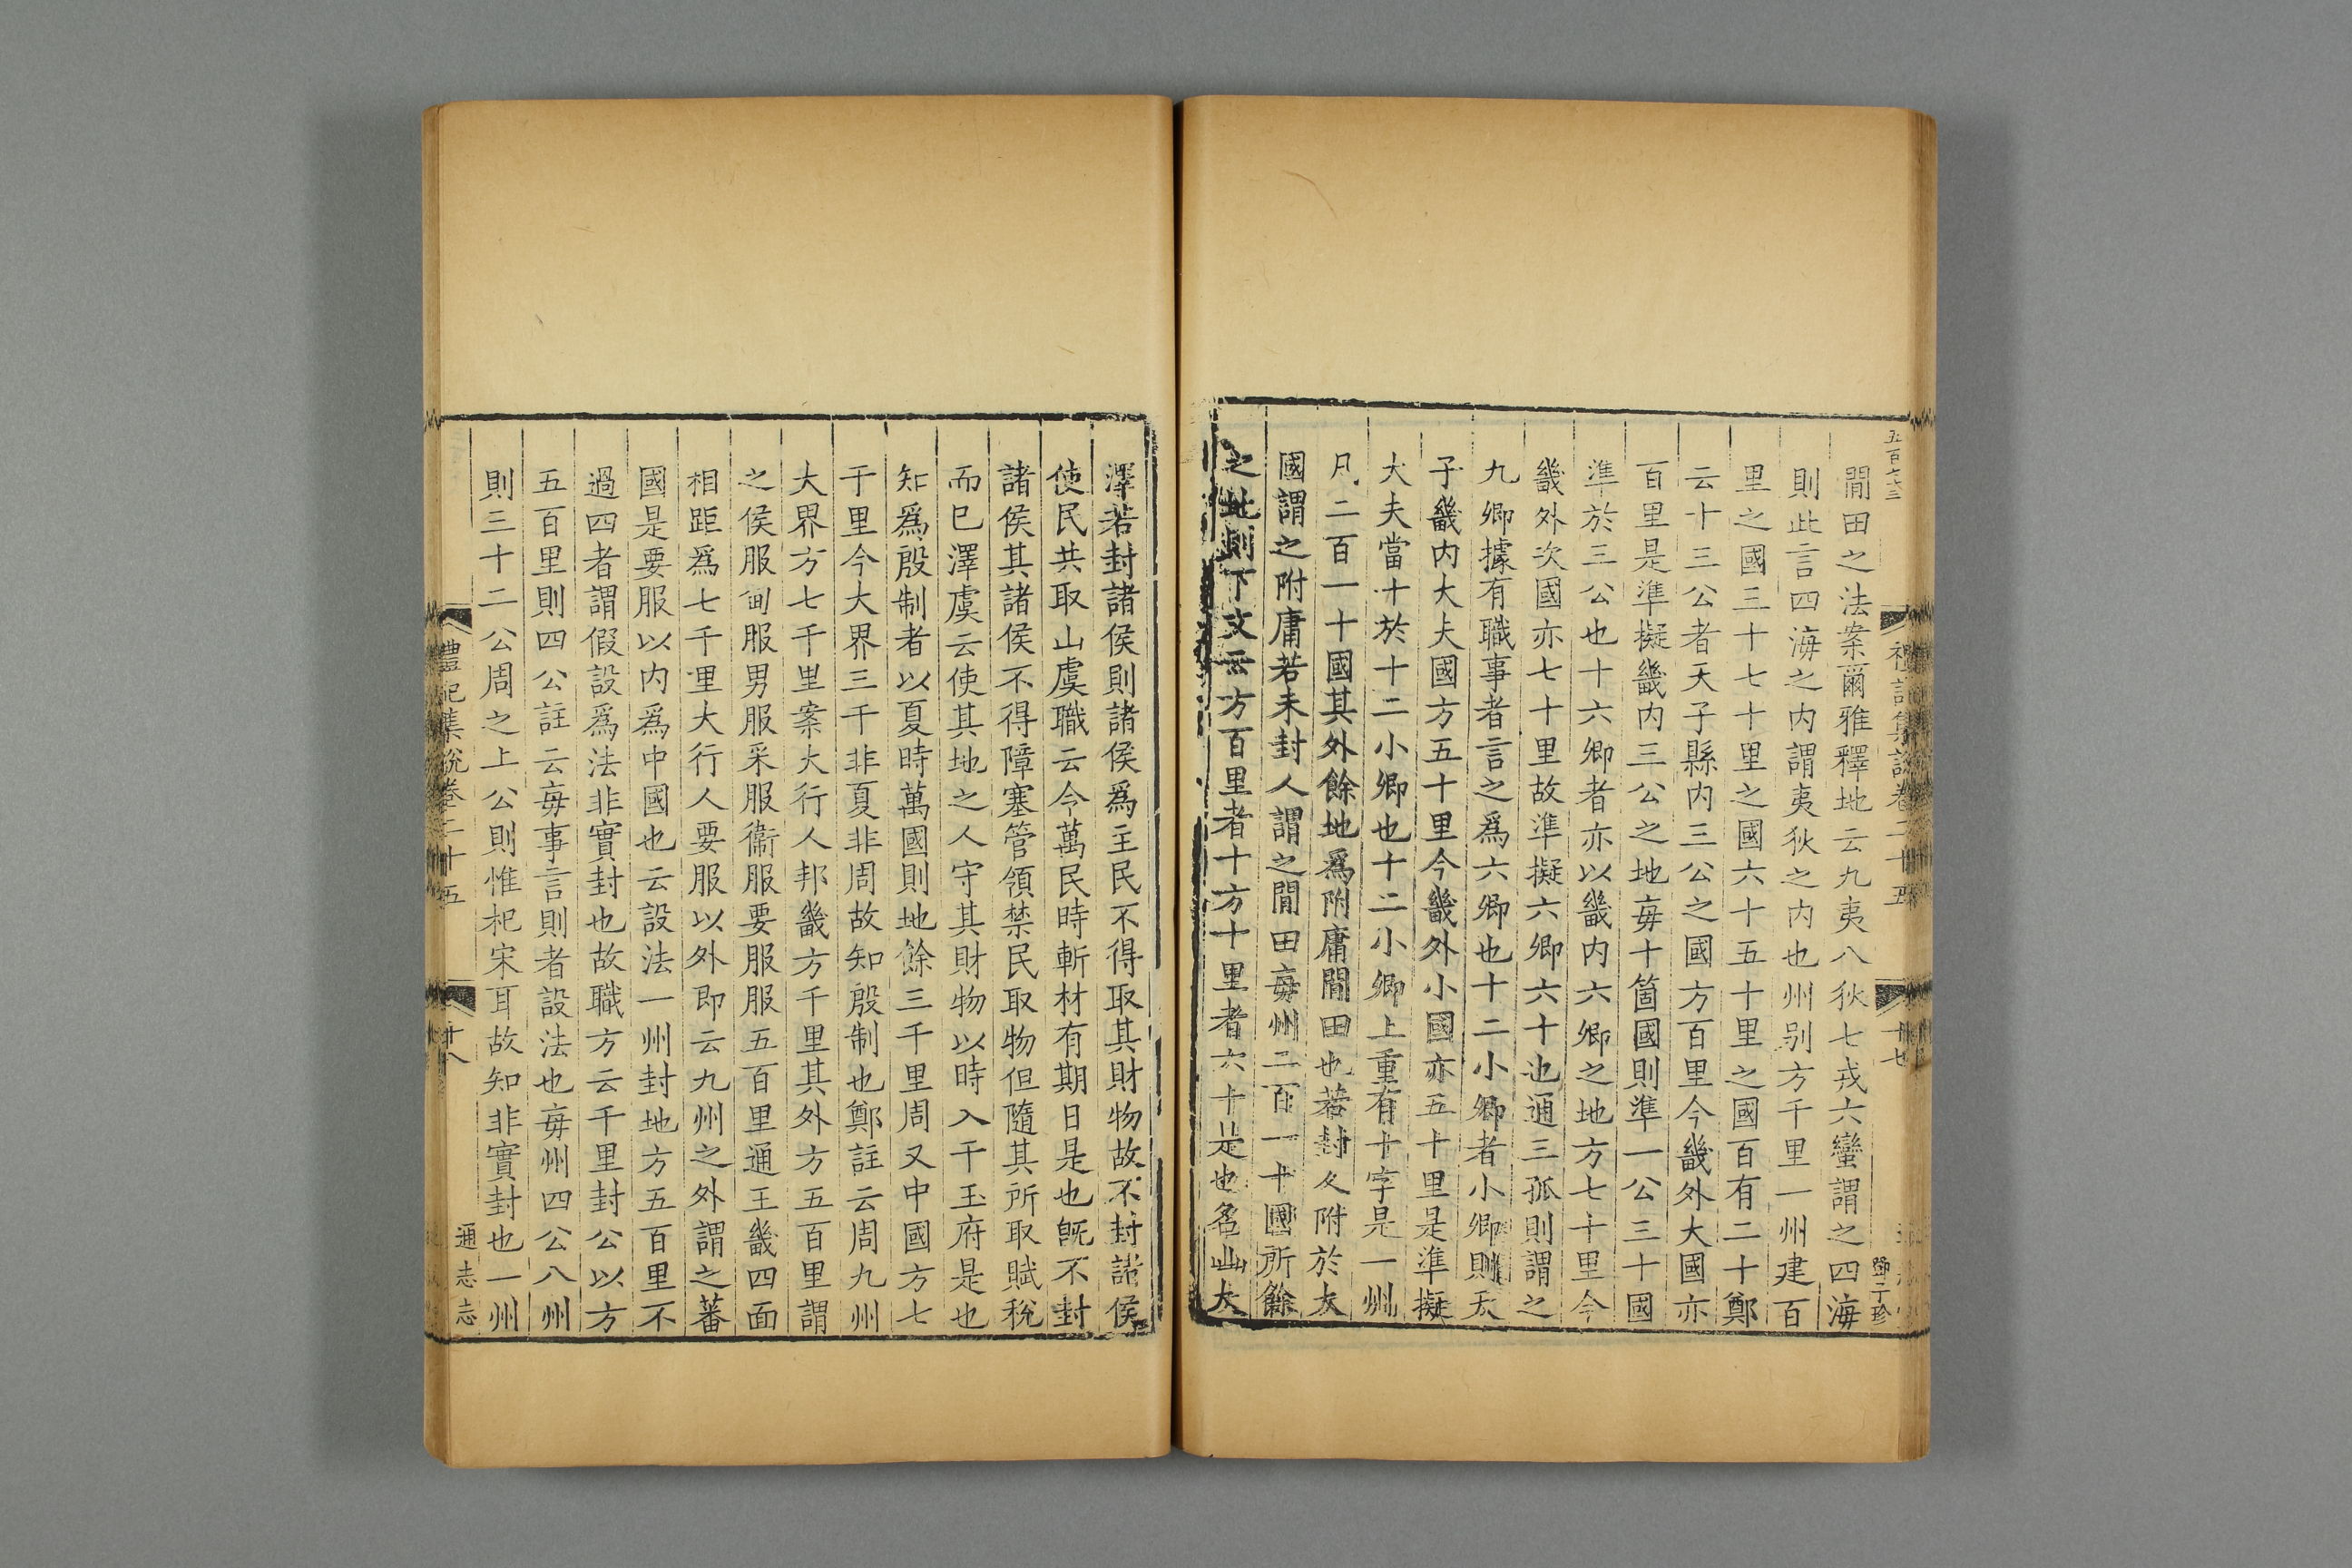 五百七十三
閒田之法案爾雅釋地云九夷八狄七戎六蠻謂之四海
則此言四海之内謂夷狄之内也州别方千里一州建百
里之國三十七十里之國六十五十里之國百有二十鄭
云十三公者天子縣内三公之國方百里今畿外大國亦
百里是準擬畿内三公之地毎十箇國則準一公三十國
準於三公也十六卿者亦以畿内六卿之地方七十里今
畿外次國亦七十里故準擬六卿六十也通三孤則謂之
九卿據有職事者言之爲六卿也十二小卿者小卿則天
子畿内大夫國方五十里今畿外小國亦五十里是準擬
大夫當十於十二小卿也十二小卿上重有十字是一州
凡二百一十國其外餘地爲附庸閒田也若封人附於大
國謂之附庸若未封人謂之閒田毎州二百一十國所餘
之地則下文云方百里者十方十里者六十是也名山大
禮記集說卷二十五
十七
鄧子珍
澤若封諸侯則諸侯爲主民不得取其財物故不封諸侯
使民共取山虞職云令萬民時斬材有期日是也旣不封
諸侯其諸侯不得障塞管領禁民取物但隨其所取賦稅
而已澤虞云使其地之人守其財物以時入于玉府是也
知爲殷制者以夏時萬國則地餘三千里周又中國方七
千里今大界三千非夏非周故知殷制也鄭註云周九州
大界方七千里案大行人邦畿方千里其外方五百里謂
之侯服甸服男服采服衞服要服服五百里通王畿四面
相距爲七千里大行人要服以外即云九州之外謂之蕃
國是要服以内爲中國也云設法一州封地方五百里不
過四者謂假設爲法非實封也故職方云千里封公以方
五百里則四公註云毎事言則者設法也毎州四公八州
則三十二公周之上公則惟杞宋耳故知非實封也一州
禮記集說卷二十五
十八
通志
志